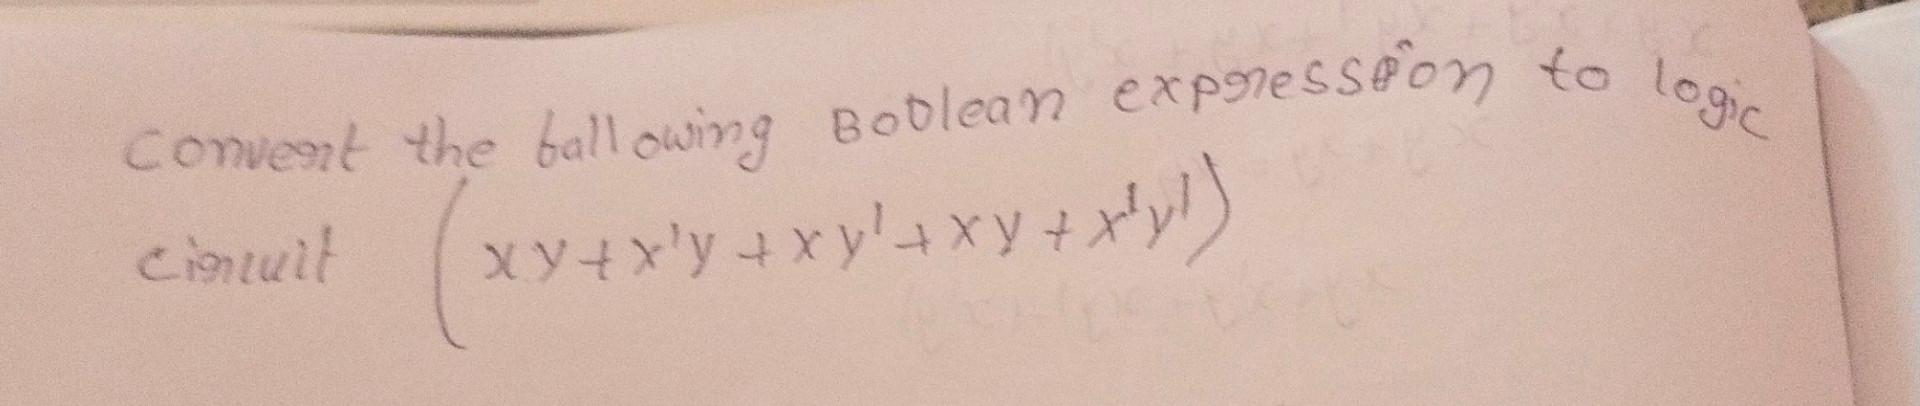 Convert the following Boolean expression to logic
circuit (xy+x'y+xy'+xy+x'y')